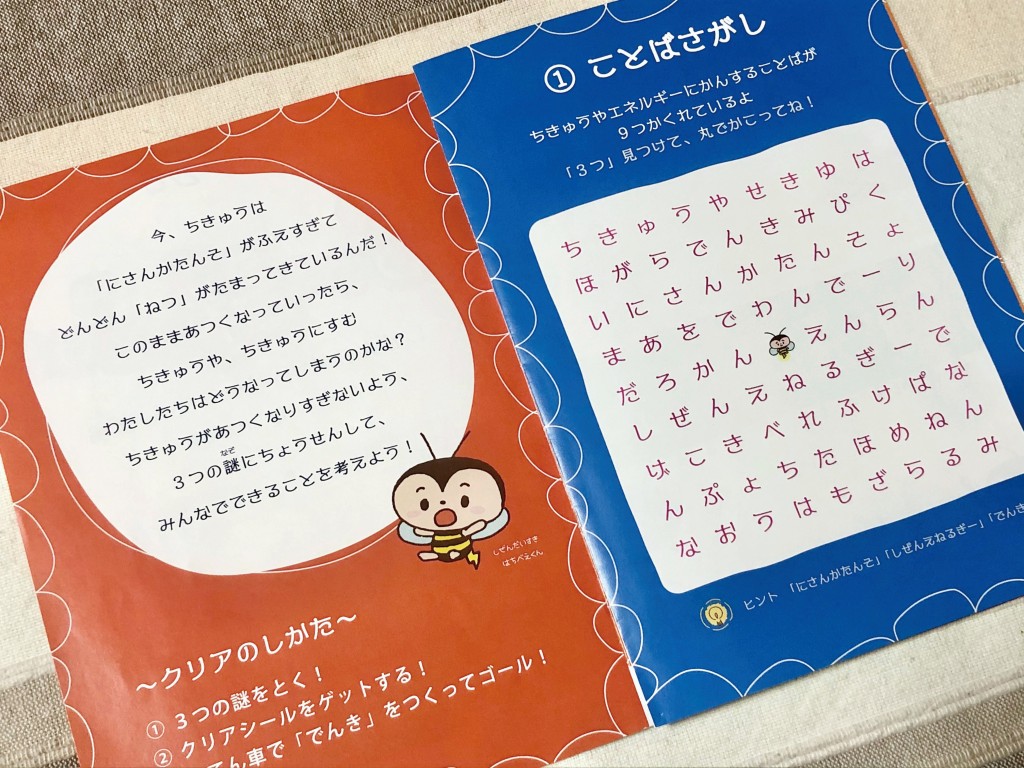 今、ちきゅうは
「にさんかたんそ」がふえすぎて
どんどん「ねつ」がたまってきているんだ！
このままあつくなっていったら、
ちきゅうや、ちきゅうにすむ
わたしたちはどうなってしまうのかな？
ちきゅうがあつくなりすぎないよう、
なぞ
３つの謎にちょうせんして、
みんなでできることを考えよう！
しぜんだいすき
はちべえくん
～クリアのしかた～
① ３つの謎をとく！
② クリアシールをゲットする！
てん車で「でんき」をつくってゴール！
① ことばさがし
ちきゅうやエネルギーにかんすることばが
９つかくれているよ
「３つ」見つけて、丸でかこってね！
ちきゅうやせきゆは
ほがらでんきみぴく
いにさんかたんそょ
まあをでわんでーり
だろかんえんらん
しぜんえねるぎーで
げこきべれふけぱな
んぷょちたほめねん
なおうはもざらるみ
ヒント 「にさんかたんそ」「しぜんえねるぎー」「でんき